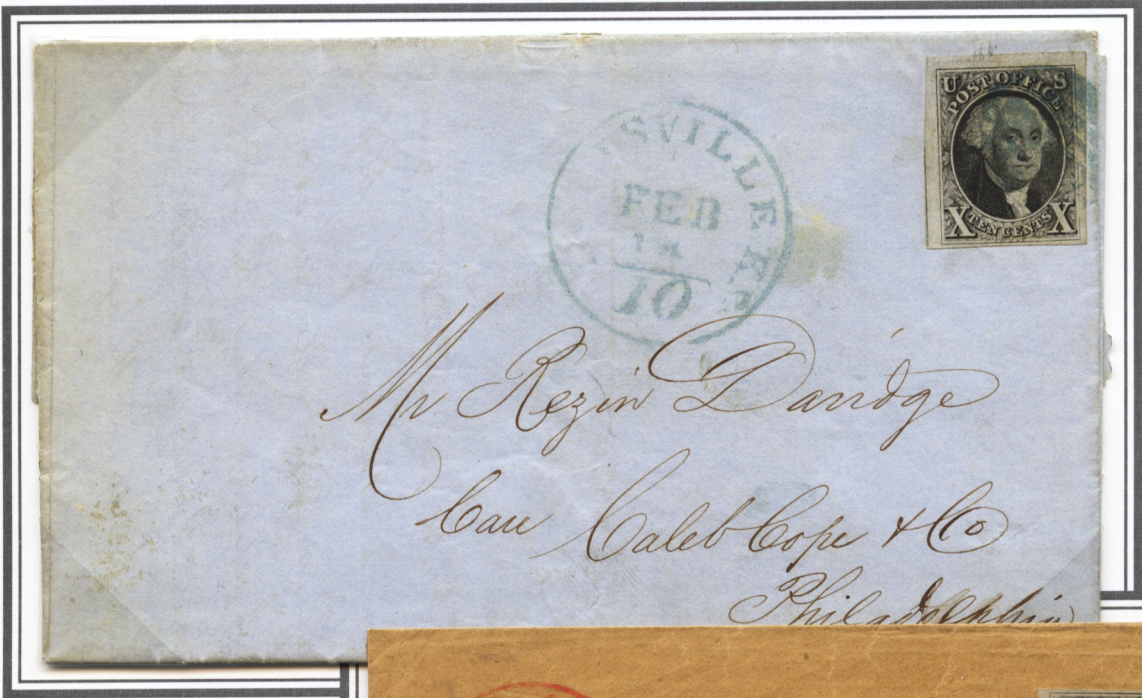 U S
POST OFFICE
X TEN CENTS X
SVILLE
FEB
10
Mr Rezin Davidge
Care Caleb Cope & Co
Philadelphia